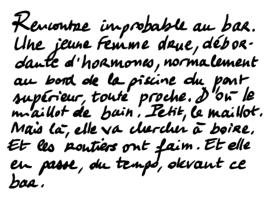 Rencontre improbable au bar.
Une jeune femme drue, débor-
dante d'hormones, normalement
au bord de la piscine du pont
supérieur, toute proche. D'où le
maillot de bain. Petit, le maillot.
Mais là, elle va chercher à boire.
Et les routiers ont faim. Et elle
en passe, du temps, devant ce
bar.